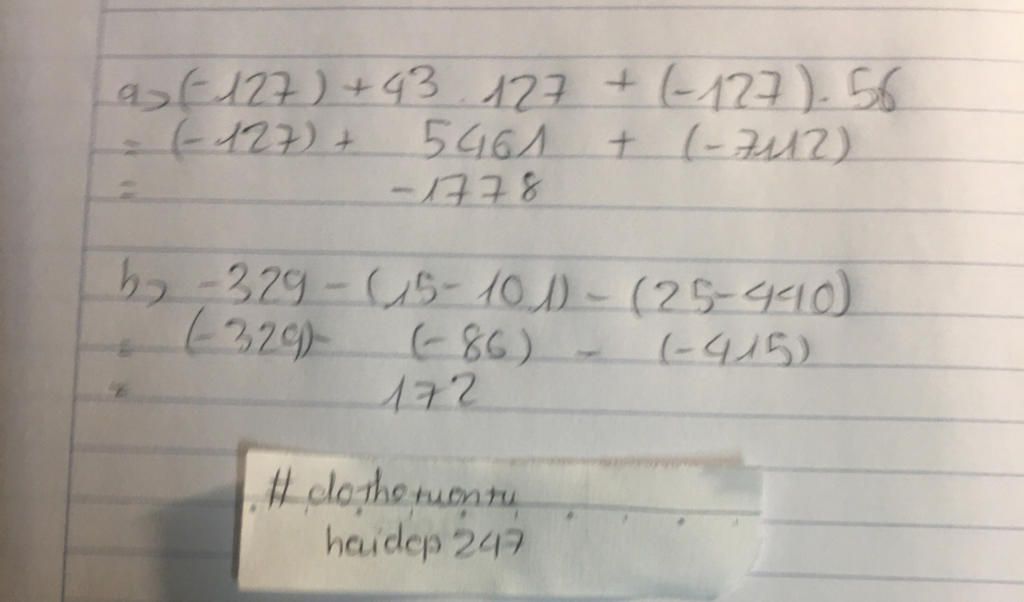 a) (-127) + 43 . 127 + (-127) . 56
= (-127) + 5461 + (-7112)
= -1778
b) -329 - (15 - 101) - (25 - 440)
= (-329) - (-86) - (-415)
= 172
# dothetuontu
haidep247